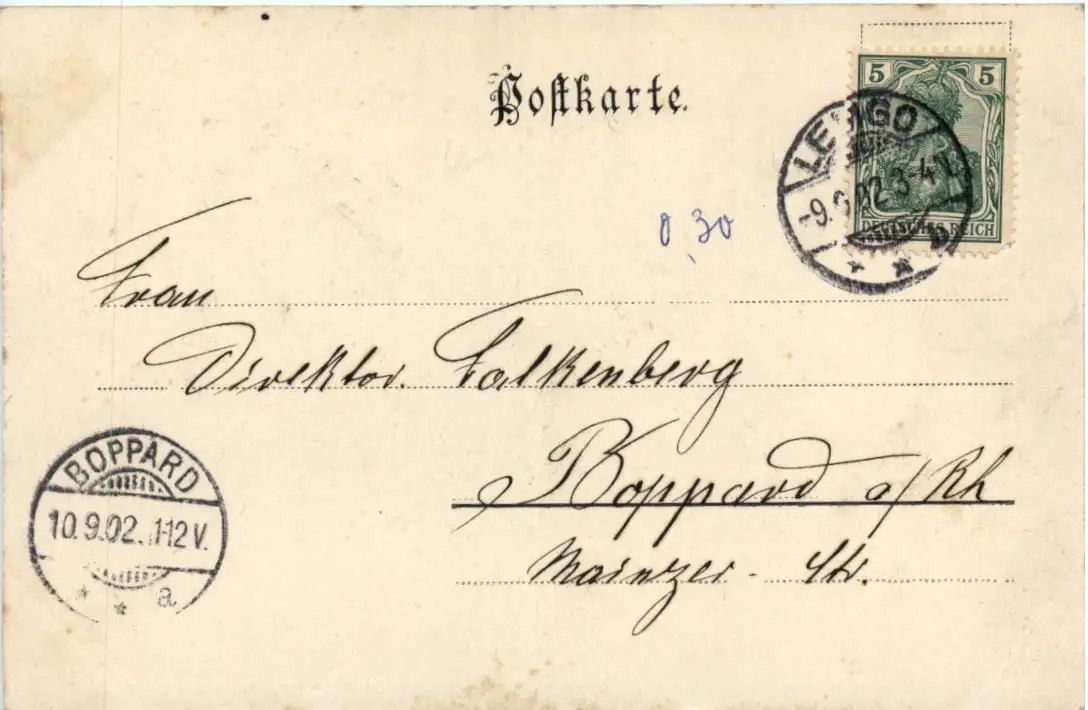 Postkarte.
5 5
DEUTSCHES REICH
LEMGO
-9.9.02 3-4 N.
0,30
Frau
Direktor. Falkenberg
Boppard a/Rh
Mainzer- Str.
BOPPARD
10.9.02. 11-12 V.
a